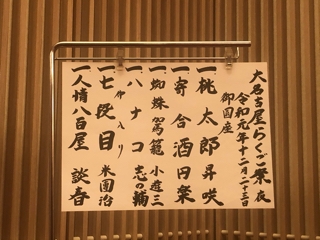 大名古屋らくご祭 夜
令和元年十二月二十三日
御園座
一 桃太郎 昇咲
一 寄合酒 円楽
一 蜘蛛駕籠 小遊三
一 ハナコ 志の輔
仲入り
一 七段目 米團治
一 人情八百屋 談春